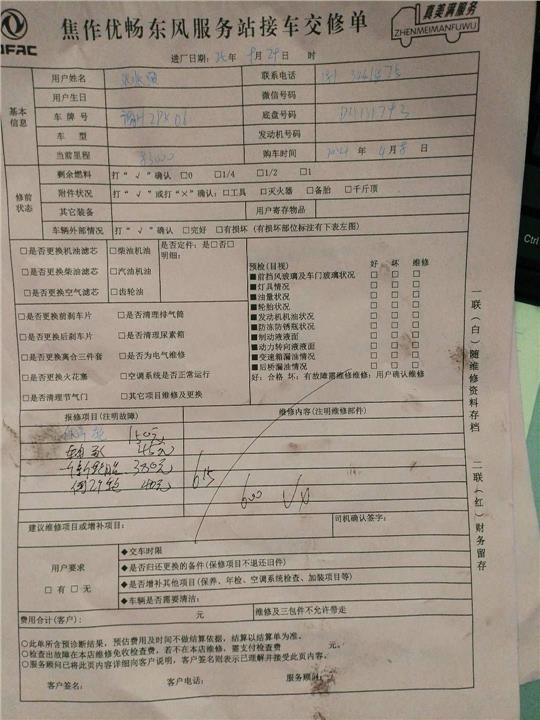 DFAC
焦作优畅东风服务站接车交修单
真美满服务
ZHENMEIMANFUWU
进厂日期: 年 9月29日 时
基本信息
用户姓名
联系电话
用户生日
微信号码
车 牌 号
底盘号码
车 型
发动机号码
当前里程
购车时间 年 4月 日
修前状态
剩余燃料 打"√"确认 □0 □1/4 □1/2 □1
附件状况 打"√"或打"×"确认:□工具 □灭火器 □备胎 □千斤顶
其它装备
用户寄存物品
车辆外部情况 打"√"确认 □完好 □有损坏(有损坏部位标注有下表左图)
□是否更换机油滤芯 □柴油机油 是否定件:是□否□
明细:
□是否更换柴油滤芯 □汽油机油
□是否更换空气滤芯 □齿轮油
□是否更换前刹车片 □是否清理排气筒
□是否更换后刹车片 □是否清理尿素箱
□是否更换离合三件套 □是否为电气维修
□是否更换火花塞 □空调系统是否正常运行
□是否清理节气门 □其它项目维修及更换
预检(目视) 好 坏 维修
■前挡风玻璃及车门玻璃状况 □ □ □
■灯具情况 □ □ □
■油量状况 □ □ □
■轮胎状况 □ □ □
■发动机机油状况 □ □ □
■防冻防锈瓶状况 □ □ □
■制动液液面 □ □ □
■动力转向液液面 □ □ □
■变速箱漏油情况 □ □ □
■后桥漏油情况 □ □ □
好:合格 坏:有故障需维修维修:用户确认维修
报修项目(注明故障)
维修内容(注明维修部件)
150元
45元
380元
40元
615
600
建议维修项目或增补项目:
司机确认签字:
用户要求
□有 □无
◆交车时限
◆是否归还更换的备件(保修项目不退还旧件)
◆是否增补其他项目(保养、年检、空调系统检查、加装项目等)
◆车辆是否需要清洁:
费用合计(客户): 元
维修及三包件不允许带走
○此单所含预诊断结果,预估费用及时间不做结算依据,结算以结算单为准。
○检查出故障在本店维修免收检查费,若不在本店维修,需支付检查费 元。
○服务顾问已将此页内容详细向客户说明,客户签名则表示已理解并接受此页内容。
客户签名: 客户电话: 服务顾问:
一联(白)随维修资料存档
二联(红)财务留存
Ctrl